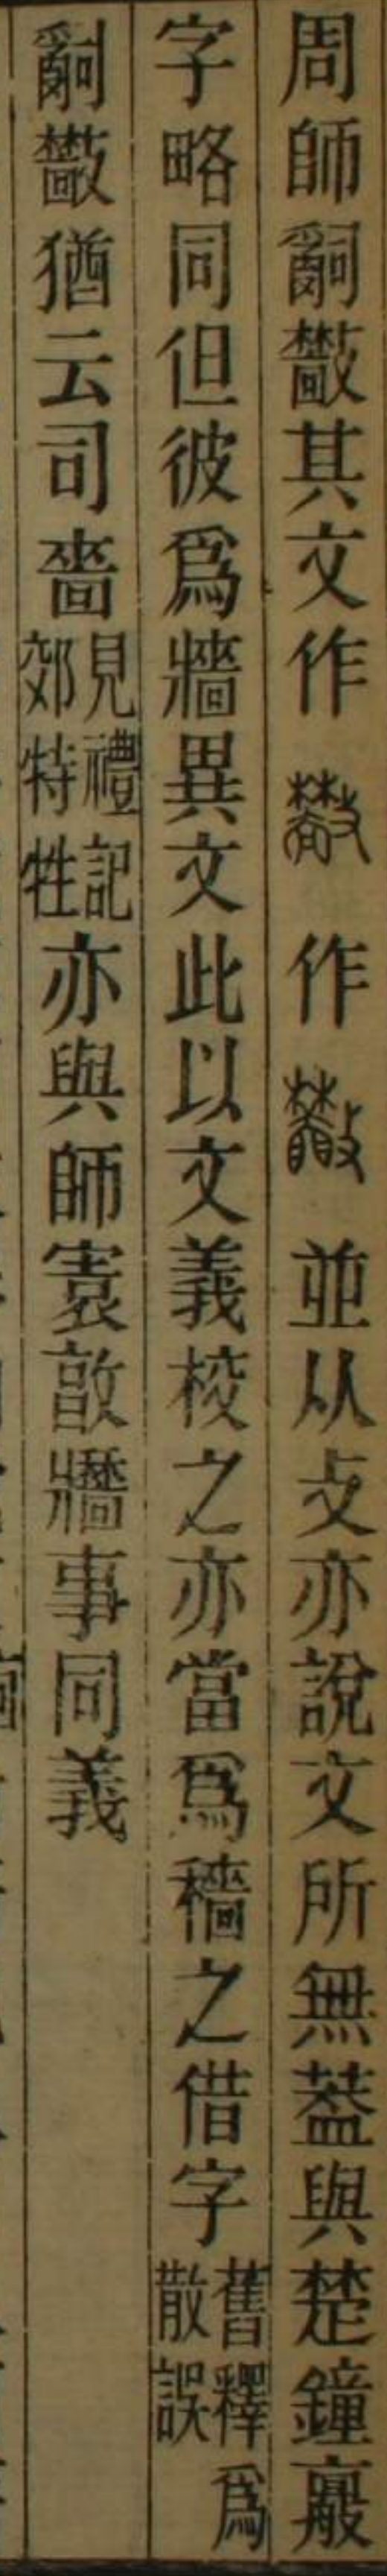 周師嗣𣀈其文作 作 並从攴亦說文所無葢與楚鐘
字略同但彼爲牆異文此以文義校之亦當爲穡之借字舊釋爲散誤
嗣𣀈猶云司嗇見禮記郊特牲亦與師㝨敦牆事同義